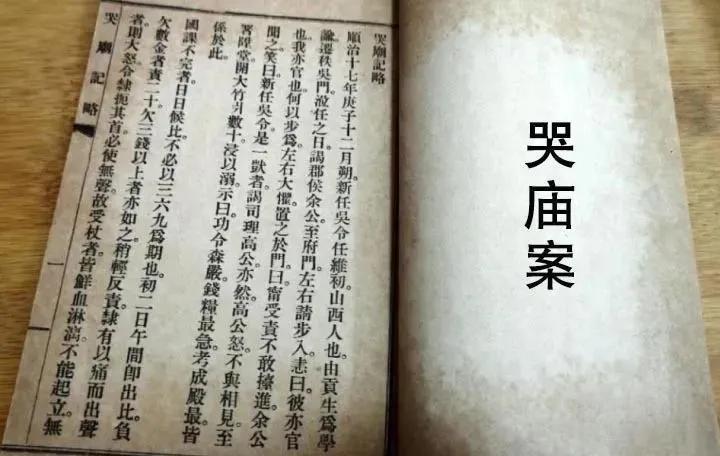 哭廟記略
順治十七年庚子十二月朔。新任吳令任維初。山西人也。由貢生爲學
諭。遷秩吳門。涖任之日。謁郡侯余公。至府門。左右請步入。恚曰。彼亦官
也。我亦官也。何以步爲。左右大懼。置之於門。曰。甯受責。不敢擡進。余公
聞之。笑曰。新任吳令。是一獃者。謁司理高公亦然。高公怒。不與相見。至
署陞堂。開大竹片數十。浸以溺。示曰。功令森嚴。錢糧最急。考成殿最。皆
係於此。
國課不完者。日日候比。不必以三六九爲期也。初二日午間。卽出比。負
欠數金者。責二十。欠三錢以上者。亦如之。稍輕反責隸。有以痛而出聲
者。則大怒。令隸扼其首。必使無聲。故受杖者皆鮮血淋漓。不能起立。無
哭廟記略
一
哭庙案